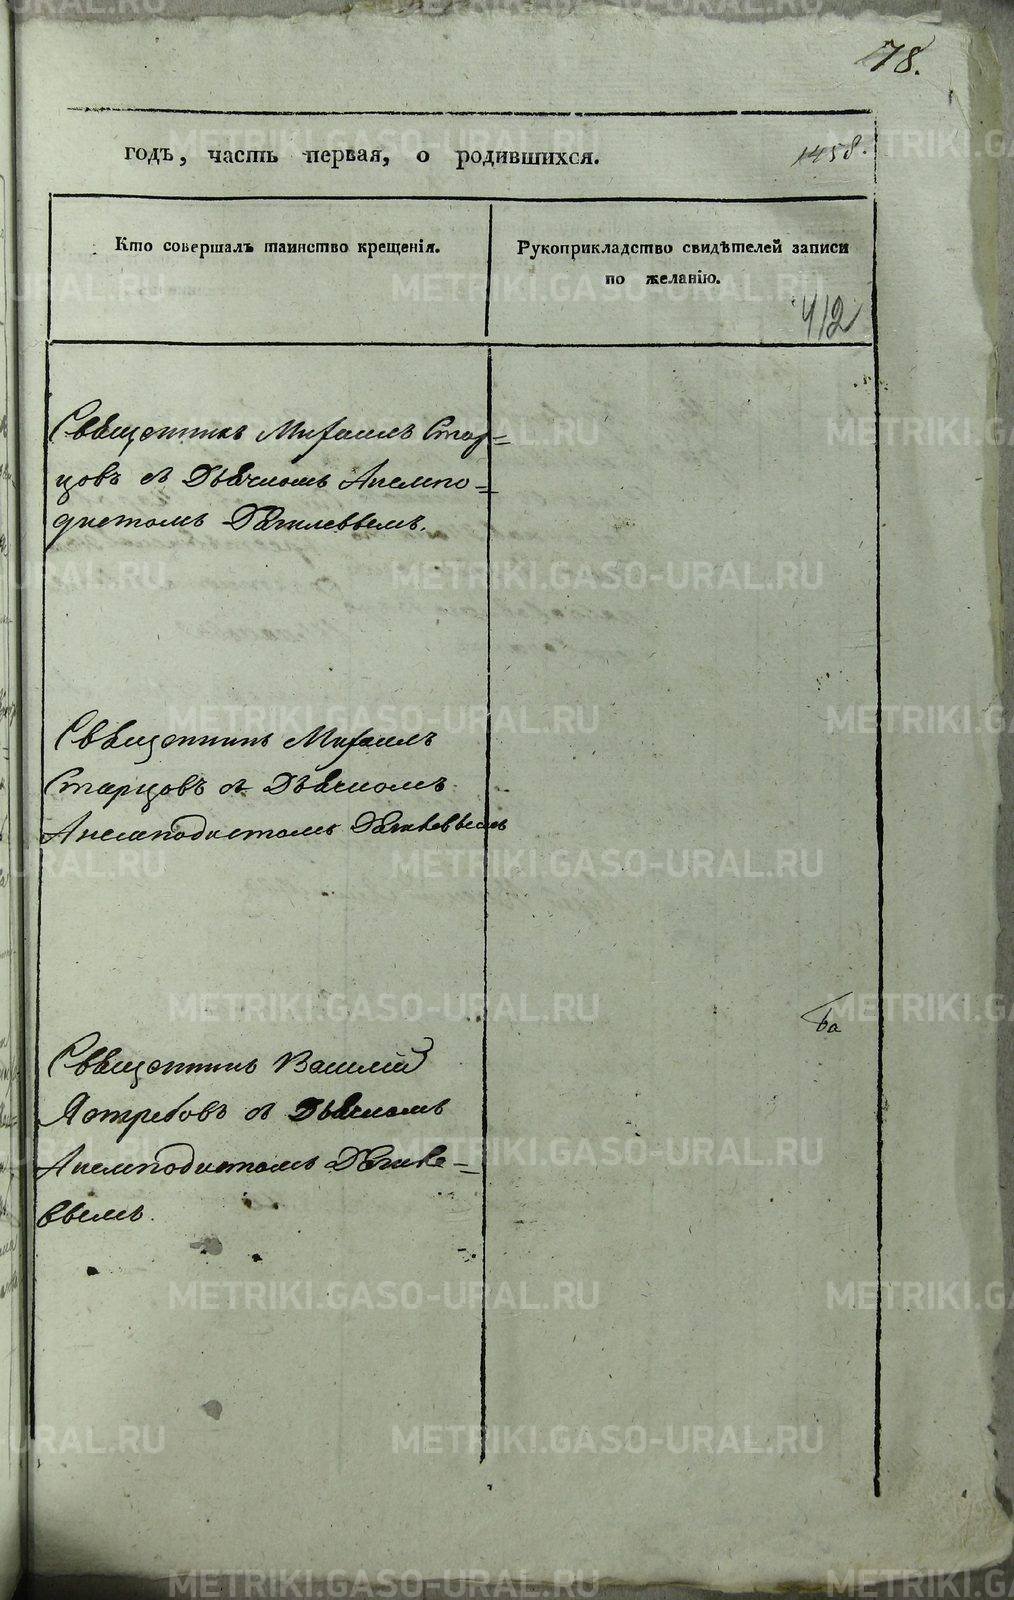 78.
годъ, часть первая, о родившихся.
1458.
Кто совершалъ таинство крещенія.
Рукоприкладство свидѣтелей записи
по желанію.
412
Священникъ Михаилъ Стар=
цовъ съ Дьячкомъ Анемпо=
дистомъ
Священникъ Михаилъ
Старцовъ съ Дьячкомъ
Анемподистомъ
Священникъ Василій
Ястребовъ съ Дьячкомъ
Анемподистомъ
METRIKI.GASO-URAL.RU